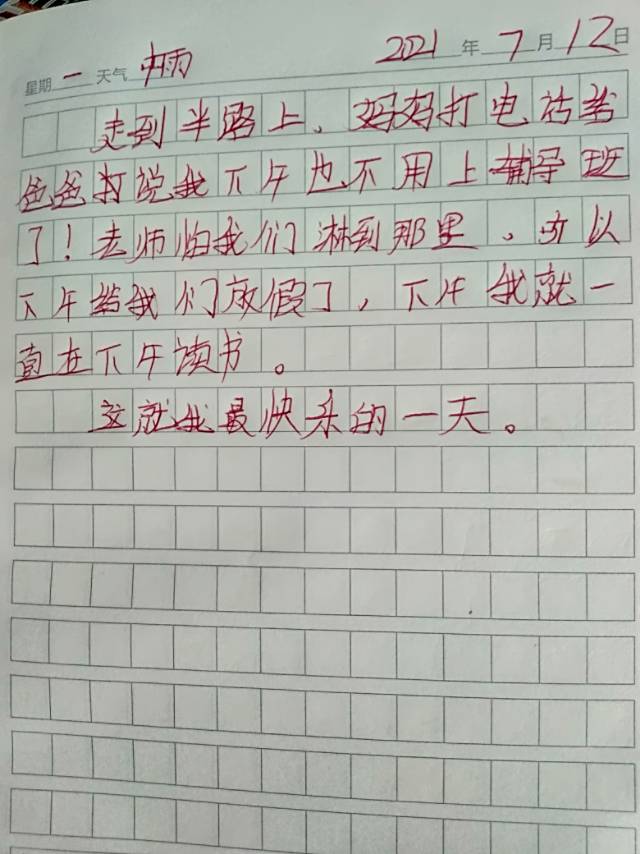 星期 一 天气 中雨 2021 年 7 月 12 日
走到半路上、妈妈打电话给
爸爸打说我下午也不用上辅导班
了！老师怕我们淋到那里、所以
下午给我们放假了，下午我就一
直在下午读书。
这就我最快乐的一天。